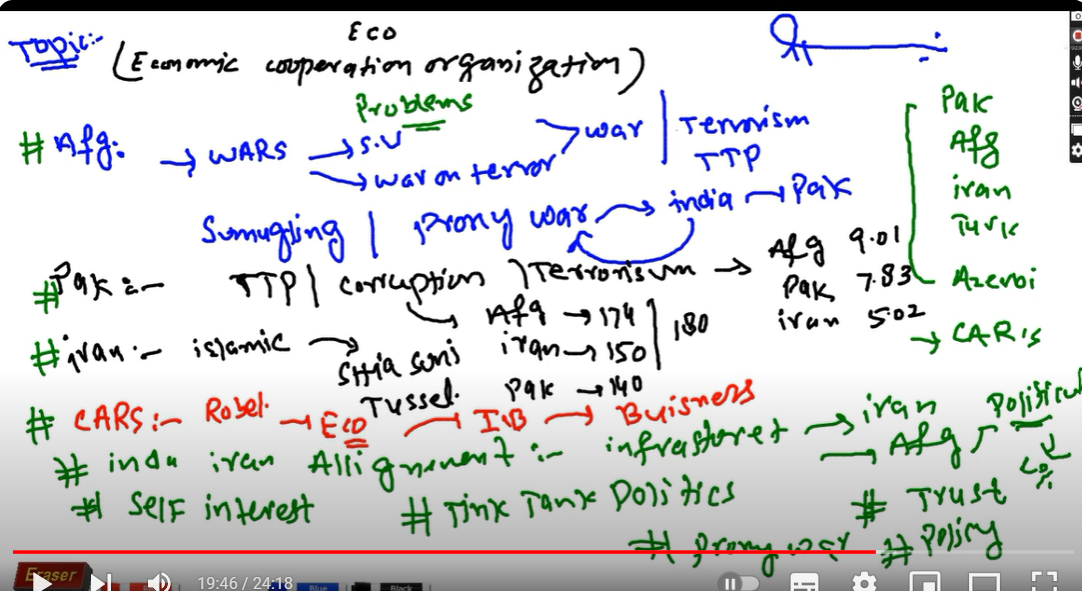 Topic:-
ECO
(Economic cooperation organization)
Problems
# Afg: → WARS → S.U → war on terror > war | Terrorism TTP
Sumugling | Proxy war → india → Pak
# Pak :- TTP | corruption | Terrorisum → Afg 9.01
Pak 7.83
iran 5.02
→ Afg → 174
iran → 150
Pak → 140
180
# iran :- islamic → SHia suni Tussel.
Pak
Afg
iran
Turk
Azerbi
→ CAR's
# CARS:- Robel. → ECO → IB → Buisness
# india iran Allignment :- infrastoret → iran → Afg
# Self interest
# Tink Tank Politics
# Trust
# Proxy war
# Policy
Eraser
19:46 / 24:18
Blue
Black